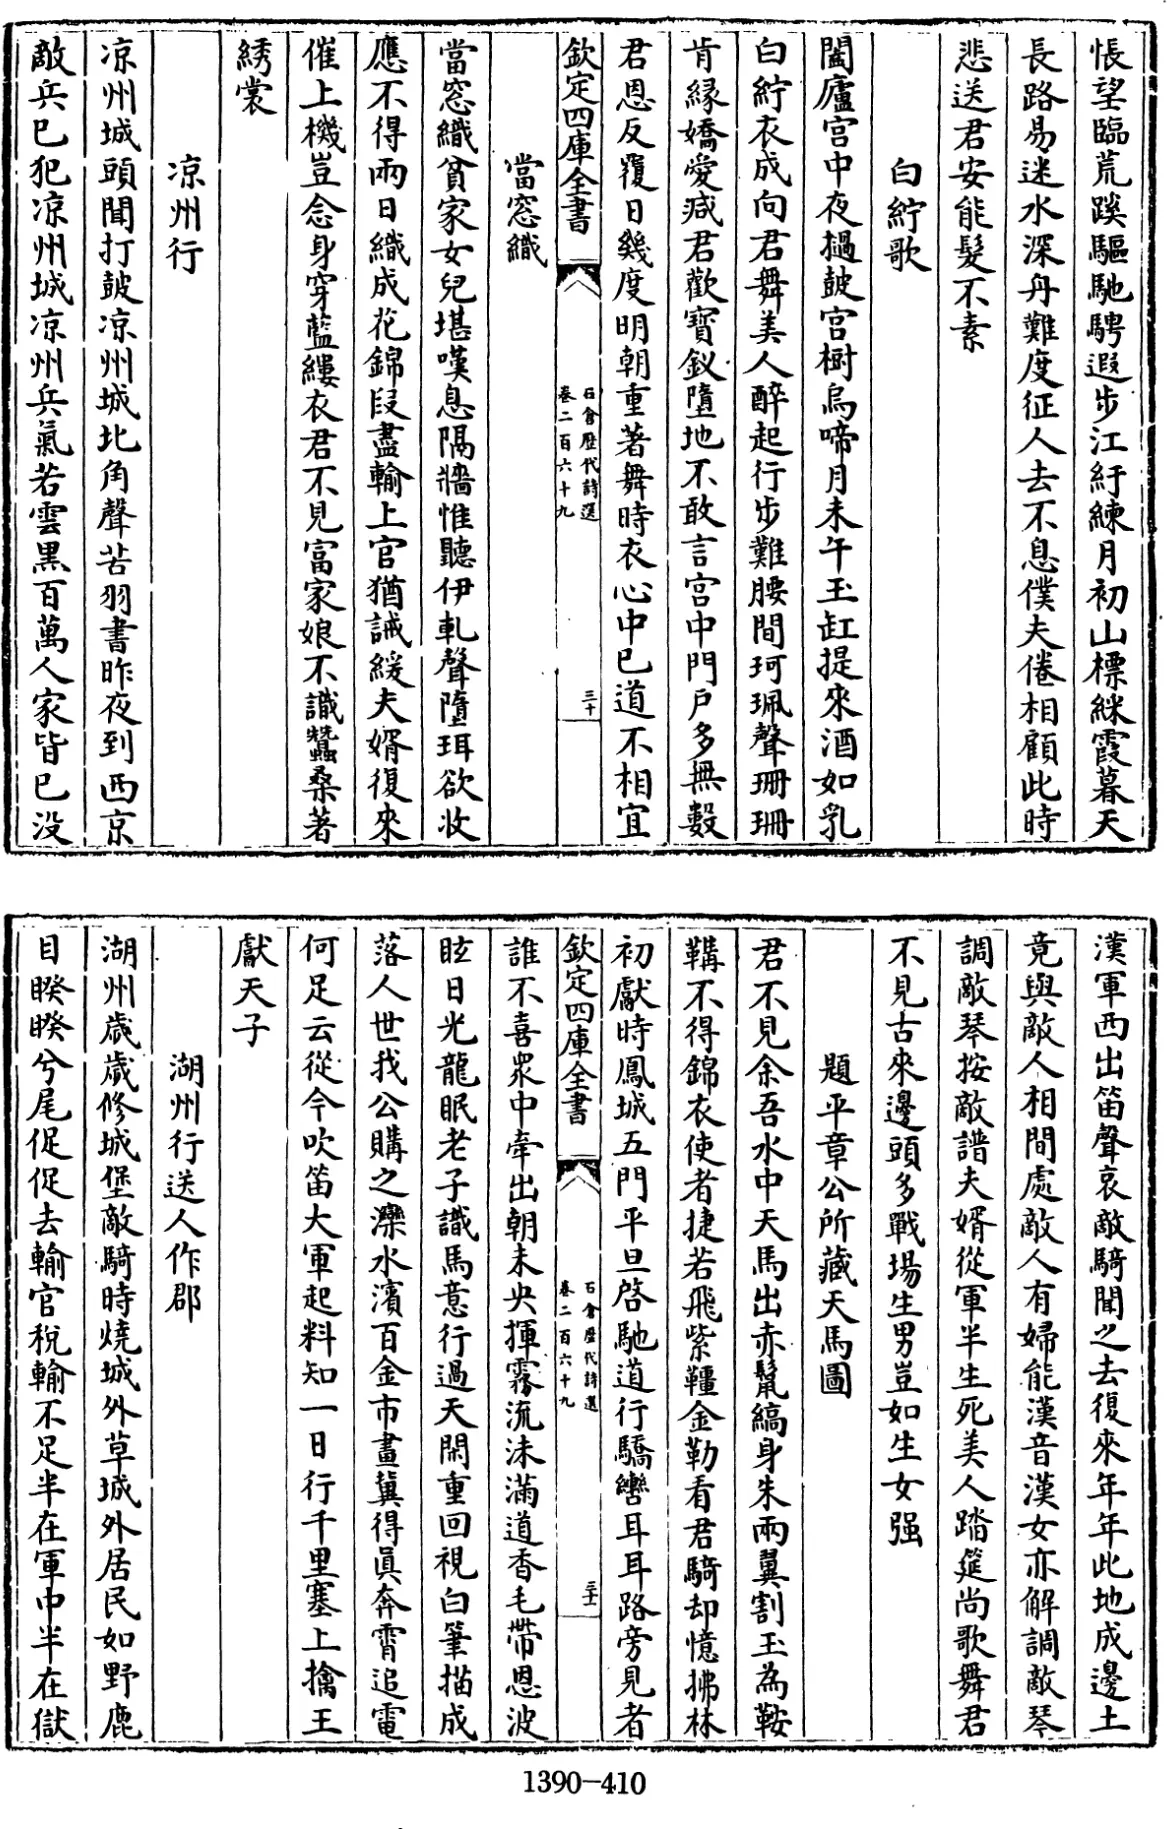 悵望臨荒蹊驅馳騁遐步江紆練月初山標綵霞暮天
長路易迷水深舟難度征人去不息僕夫倦相顧此時
悲送君安能髮不素
白紵歌
闔廬宫中夜撾鼓宫樹烏啼月未午玉缸提來酒如乳
白紵衣成向君舞美人醉起行步難腰間珂珮聲珊珊
肯緣嬌愛減君歡寳釵墮地不敢言宫中門戸多無數
君恩反覆日幾度明朝重著舞時衣心中已道不相宜
欽定四庫全書
石倉歷代詩選
卷二百六十九
三十
當窓織
當窓織貧家女兒堪嘆息隔牆惟聽伊軋聲墮珥欲妝
應不得兩日織成花錦段盡輸上官猶誡緩夫婿復來
催上機豈念身穿藍縷衣君不見富家娘不識蠶桑著
綉裳
凉州行
凉州城頭聞打鼓凉州城北角聲苦羽書昨夜到西京
敵兵已犯凉州城凉州兵氣若雲黒百萬人家皆已没
漢軍西出笛聲哀敵騎聞之去復來年年此地成邊土
竟與敵人相間處敵人有婦能漢音漢女亦解調敵琴
調敵琴按敵譜夫婿從軍半生死美人踏筵尚歌舞君
不見古來邊頭多戰場生男豈如生女强
題平章公所藏天馬圖
君不見余吾水中天馬出赤鬣縞身朱兩翼割玉為鞍
鞲不得錦衣使者捷若飛紫韁金勒看君騎却憶拂林
初獻時鳳城五門平旦啓馳道行驕轡耳耳路旁見者
欽定四庫全書
石倉歷代詩選
卷二百六十九
三十一
誰不喜衆中牽出朝未央揮霧流沫滿道香毛帶恩波
眩日光龍眠老子識馬意行過天閑重回視白筆描成
落人世我公購之灤水濱百金市畫冀得眞奔霄追電
何足云從今吹笛大軍起料知一日行千里塞上擒王
獻天子
湖州行送人作郡
湖州歳歳修城堡敵騎時燒城外草城外居民如野鹿
目睽睽兮尾促促去輸官税輸不足半在軍中半在獄
1390-410